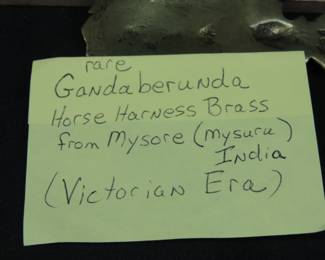 rare
Gandaberunda
Horse Harness Brass
from Mysore (mysuru)
India
(Victorian Era)